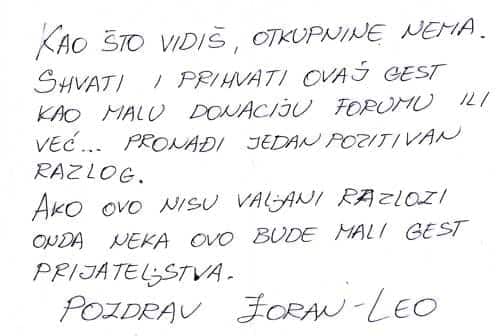 KAO ŠTO VIDIŠ, OTKUPNINE NEMA.
SHVATI I PRIHVATI OVAJ GEST
KAO MALU DONACIJU FORUMU ILI
VEĆ... PRONAĐI JEDAN POZITIVAN
RAZLOG.
AKO OVO NISU VALJANI RAZLOZI
ONDA NEKA OVO BUDE MALI GEST
PRIJATELJSTVA.
POZDRAV ZORAN-LEO